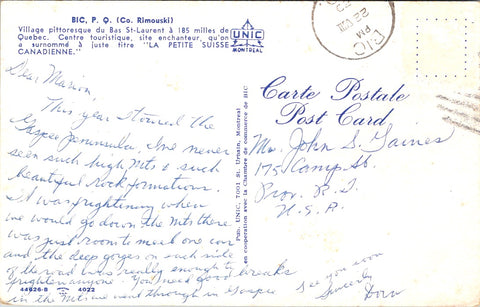 BIC, P. Q. (Co. Rimouski)
Village pittoresque du Bas St-Laurent à 185 milles de
Quebec. Centre touristique, site enchanteur, qu'on
a surnommé à juste titre "LA PETITE SUISSE
CANADIENNE."
UNIC
MONTRÉAL
BIC
PM
22 VIII
Dear Marion,
This year I toured the
Gaspe Peninsula. I've never
seen such high Mts & such
beautiful rock formations.
It was frightening when
we would go down the Mts there
was just room to meet one car
and the deep gorges on each side
of the road was really enough to
frighten anyone. You need good breaks
in the Mts we went through in Gaspe
See you soon
Sincerely
Dora
44626-B
4022
Pub. UNIC, 7001 St. Urbain, Montreal
en coopération avec la Chambre de commerce de BIC
Carte Postale
Post Card
Mrs. John S. Gaines
175 Camp St.
Prov. R.I.
U.S.A.